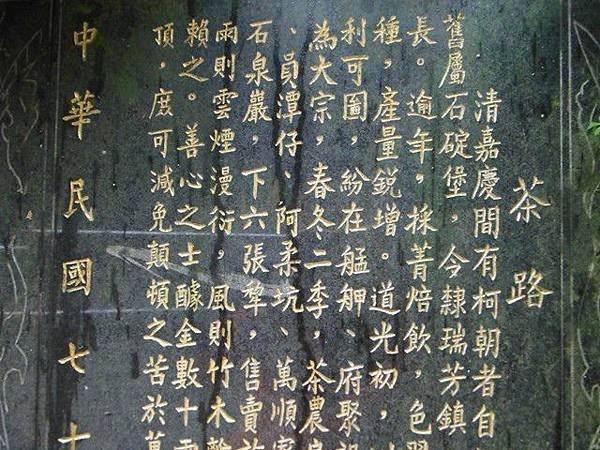 茶路
清嘉慶間有柯朝者自
舊屬石碇堡，今隸瑞芳鎮
長。逾年，採菁焙飲，色
種，產量銳增。道光初，
利可圖，紛在艋舺 府聚
為大宗，春冬二季，茶農
、員潭仔、阿柔坑、萬順
石泉巖，下六張犂，售賣於
雨則雲煙漫衍，風則竹木
賴之。善心之士醵金數十
頂，庶可減免顛頓之苦於萬
中華民國七十